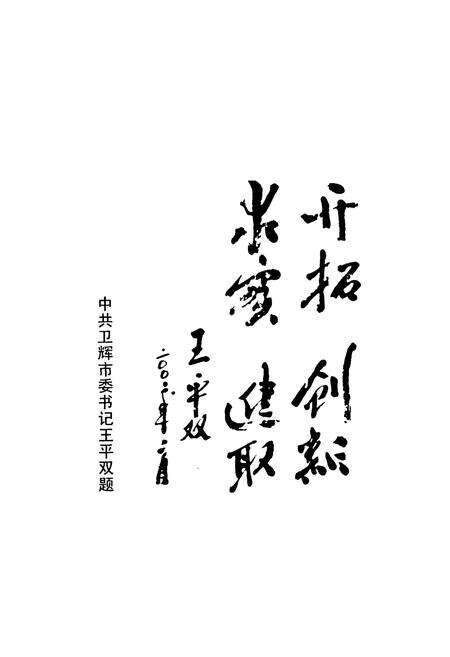 开拓 创新
求实 进取
王平双
二〇〇六年二月
中共卫辉市委书记王平双题